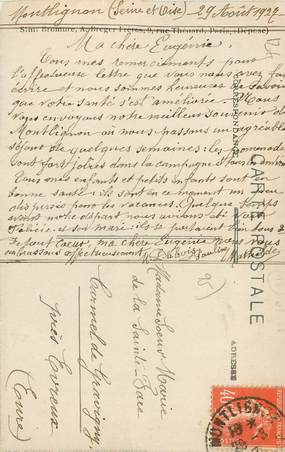 Montlignon (Seine et Oise) 29 Août 1924
Sim. Bromure, A. Breger Frères, 9, rue Thénard, Paris (Déposé)
Ma chère Eugénie
Tous mes remerciements pour
l'affectueuse lettre que vous nous avez fait
écrire et nous sommes heureuses de savoir
que votre santé s'est améliorée. Nous
vous envoyons notre meilleur souvenir de
Montlignon où nous passons un agréable
séjour de quelques semaines; les promenades
sont fort jolies dans la campagne
Tous mes enfants et petits enfants sont en
bonne santé; ils sont en ce moment un peu
dispersés pour les vacances. Quelque temps
avant notre départ nous avions
Félicie et son mari; ils se portaient bien tous 2
De tout cœur, ma chère Eugénie nous vous
embrassons affectueusement.
Mathilde
CARTE POSTALE
CORRESPONDANCE
ADRESSE
Madame Sœur Marie
de la Sainte-Face
Carmel de Gravigny
près Evreux
(Eure)
MONTLIGNON